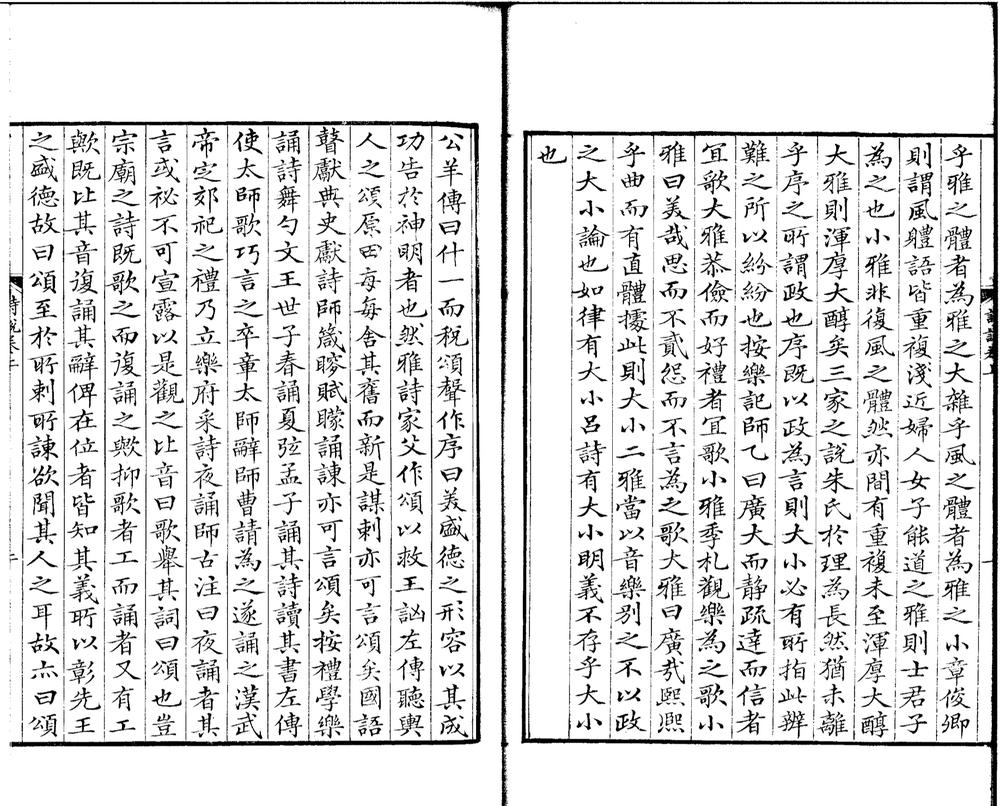 乎雅之體者為雅之大雜乎風之體者為雅之小章俊卿
則謂風軆語皆重複淺近婦人女子能道之雅則士君子
為之也小雅非復風之體然亦間有重複未至渾厚大醇
大雅則渾厚大醇矣三家之説朱氏於理為長然猶未離
乎序之所謂政也序既以政為言則大小必有所指此辨
難之所以紛紛也按樂記師乙曰廣大而静疏達而信者
宜歌大雅恭儉而好禮者宜歌小雅季札觀樂為之歌小
雅曰美哉思而不貳怨而不言為之歌大雅曰廣哉熙熙
乎曲而有直體據此則大小二雅當以音樂别之不以政
之大小論也如律有大小吕詩有大小明義不存乎大小
也
公羊傳曰什一而税頌聲作序曰美盛德之形容以其成
功告於神明者也然雅詩家父作頌以救王訩左傳聽輿
人之頌原田每每舍其舊而新是謀刺亦可言頌矣國語
瞽獻典史獻詩師箴瞍賦矇誦諫亦可言頌矣按禮學樂
誦詩舞勺文王世子春誦夏弦孟子誦其詩讀其書左傳
使太師歌巧言之卒章太師辭師曹請為之遂誦之漢武
帝定郊祀之禮乃立樂府采詩夜誦師古注曰夜誦者其
言或祕不可宣露以是觀之比音曰歌舉其詞曰頌也豈
宗廟之詩既歌之而復誦之歟抑歌者工而誦者又有工
歟既比其音復誦其辭俾在位者皆知其義所以彰先王
之盛德故曰頌至於所刺所諫欲聞其人之耳故亦曰頌